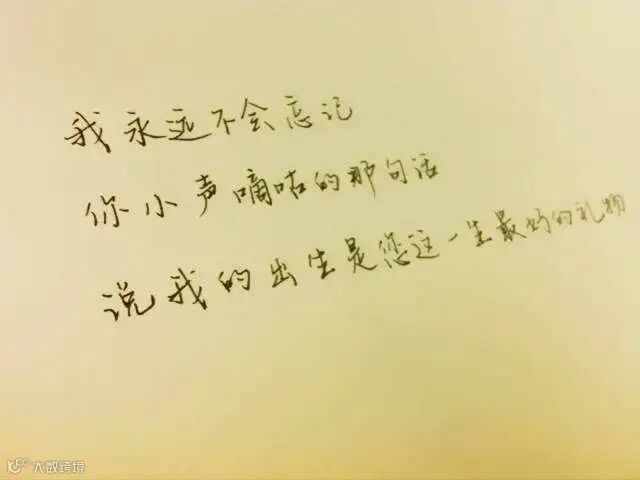 我永远不会忘记
你小声嘀咕的那句话
说我的出生是您这一生最好的礼物
大数跨境